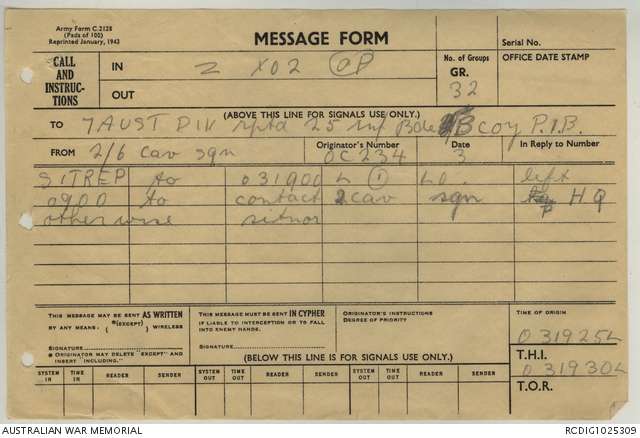 Army Form C.2128
(Pads of 100)
Reprinted January, 1943
MESSAGE FORM
Serial No.
CALL AND INSTRUC-TIONS
IN Z X02 OP
OUT
No. of Groups
GR.
32
OFFICE DATE STAMP
(ABOVE THIS LINE FOR SIGNALS USE ONLY.)
TO 7 AUST DIV rptd 25 inf Bde B coy P.I.B.
FROM 2/6 cav sqn
Originator's Number
OC234
Date
3
In Reply to Number
SITREP to 031900 L (1) Lt. left
0900 to contact 2 cav sqn HQ
otherwise sitnor
THIS MESSAGE MAY BE SENT AS WRITTEN
BY ANY MEANS. (*(EXCEPT) ) WIRELESS
SIGNATURE
* ORIGINATOR MAY DELETE "EXCEPT" AND INSERT "INCLUDING."
THIS MESSAGE MUST BE SENT IN CYPHER
IF LIABLE TO INTERCEPTION OR TO FALL INTO ENEMY HANDS.
SIGNATURE
ORIGINATOR'S INSTRUCTIONS
DEGREE OF PRIORITY
TIME OF ORIGIN
031925L
T.H.I.
031930L
T.O.R.
(BELOW THIS LINE IS FOR SIGNALS USE ONLY.)
SYSTEM IN TIME IN READER SENDER SYSTEM OUT TIME OUT READER SENDER SYSTEM OUT TIME OUT READER SENDER
AUSTRALIAN WAR MEMORIAL
RCDIG1025309